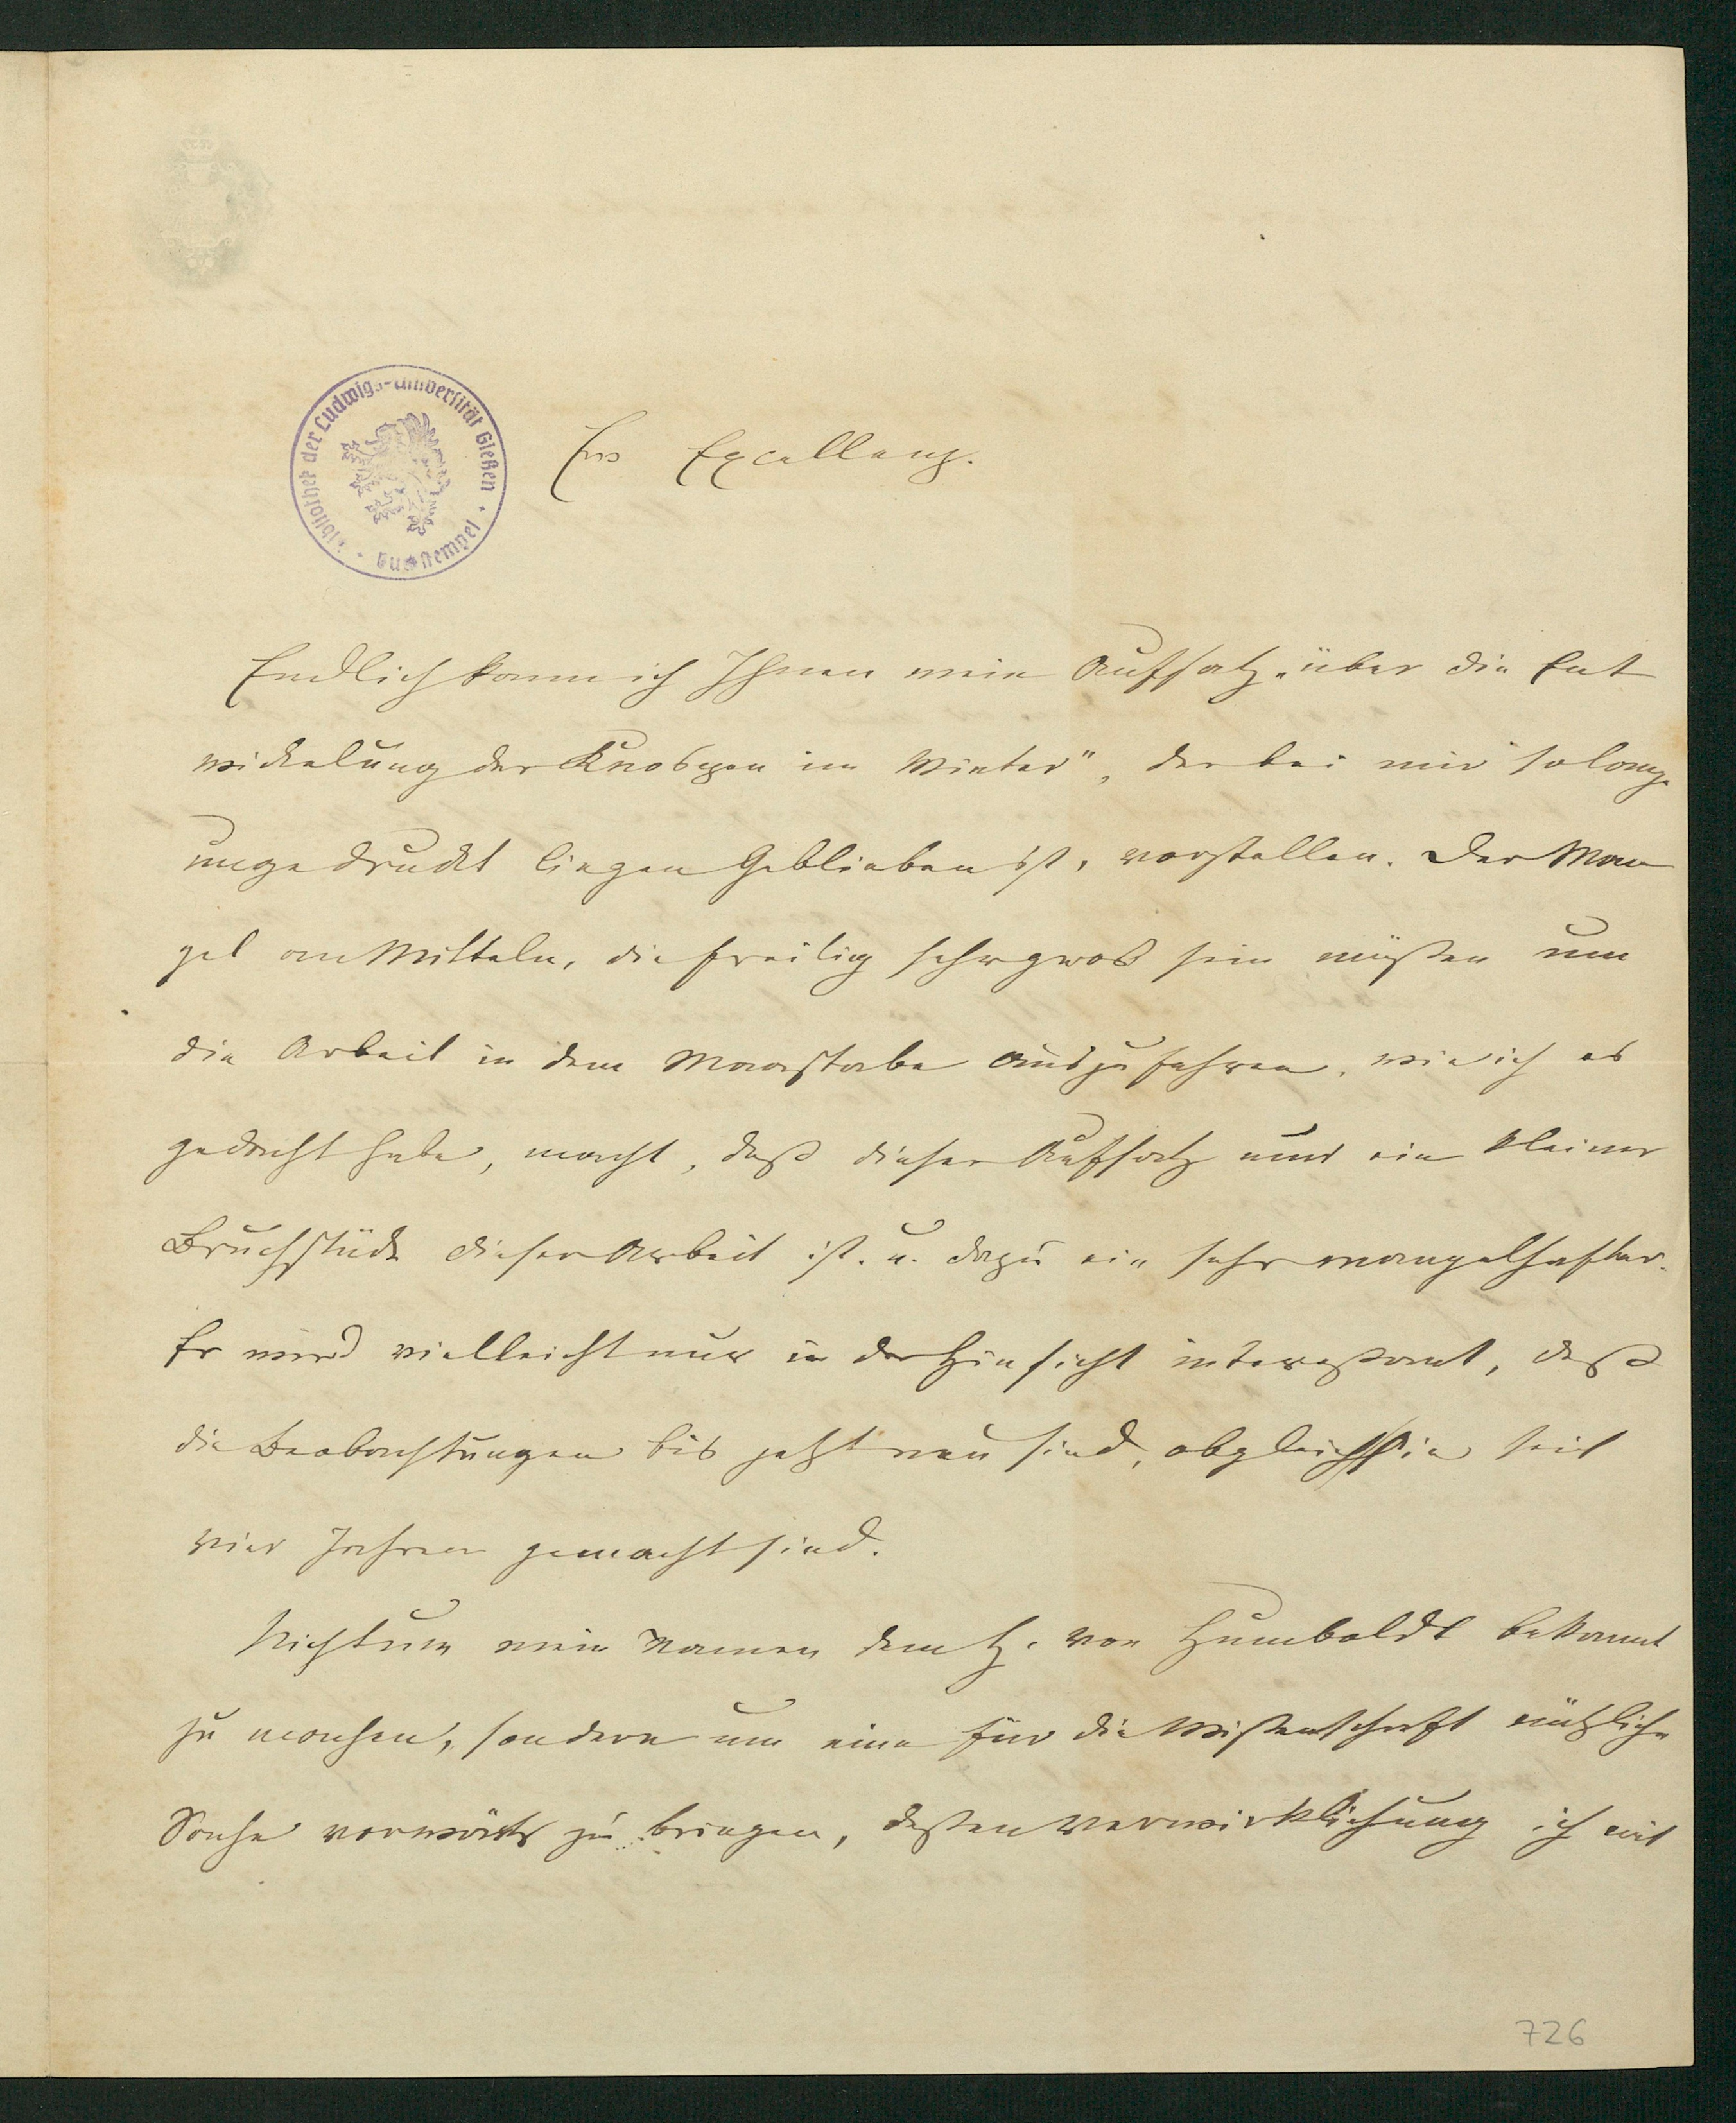 Bibliothek der Ludwigs-Universität Gießen
Ew Excellenz.
Endlich kann ich Ihnen mein Aufsatz „über die Ent
wickelung der Knospen im Winter", der bei mir so lange
ungedruckt liegen geblieben ist, vorstellen. Der Man
gel an Mitteln, die freilig sehr gros sein müßen um
die Arbeit in dem Maasstabe auszufuhren, wie ich es
gedacht habe, macht, daß dieser Aufsatz nur ein kleiner
Bruchstück dieser Arbeit ist. u. dazu ein sehr mangelhafter.
Er wird vielleicht nur in der Hinsicht interessant, daß
die Beobachtungen bis jetzt neu sind, obgleich sie seit
vier Jahren gemacht sind.
Nicht um mein Namen dem H. von Humboldt bekannt
zu machen, sondern um eine für die Wißenschaft nützliche
Sache vorwärts zu bringen, deßen Verwirklichung ich mit
726